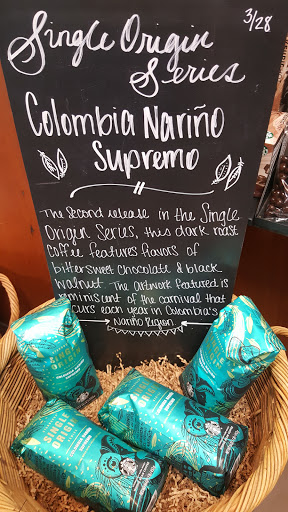 3/28
Single Origin
Series
Colombia Nariño
Supremo
The Second release in the Single
Origin Series, this dark roast
coffee features flavors of
bittersweet chocolate & black
walnut. The artwork featured is
reminiscent of the carnival that
occurs each year in Colombia's
Nariño Region
SINGLE
ORIGIN
SINGLE
ORIGIN
SINGLE
ORIGIN